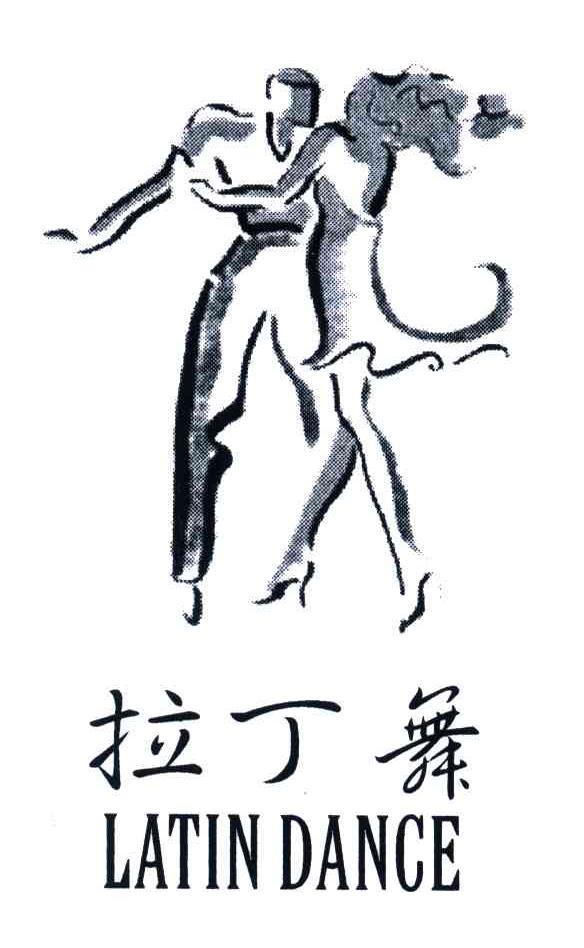 拉丁舞
LATIN DANCE